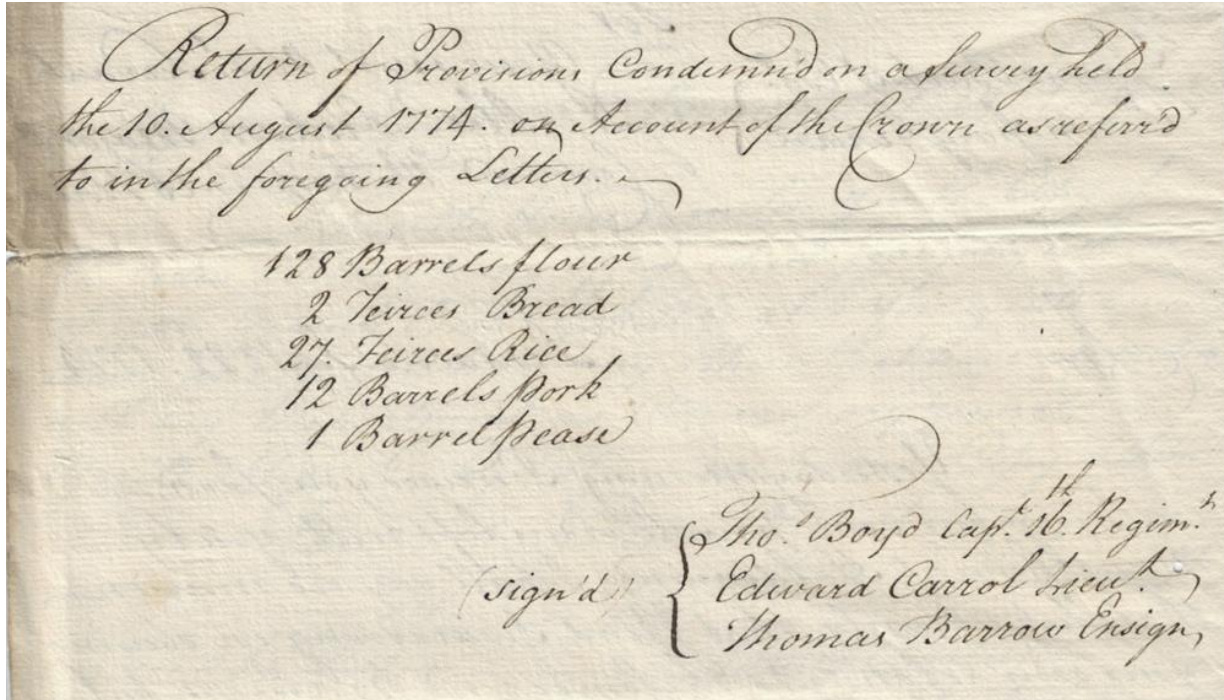 Return of Provisions Condemn'd on a Survey held
the 10. August 1774. on Account of the Crown as referr'd
to in the foregoing Letters.
128 Barrels flour
2 Teirces Bread
27. Teirces Rice
12 Barrels Pork
1 Barrel Pease
Tho.s Boyd Capt. 16th. Regim.t
(sign'd) Edward Carrol Lieut.
Thomas Barrow Ensign,